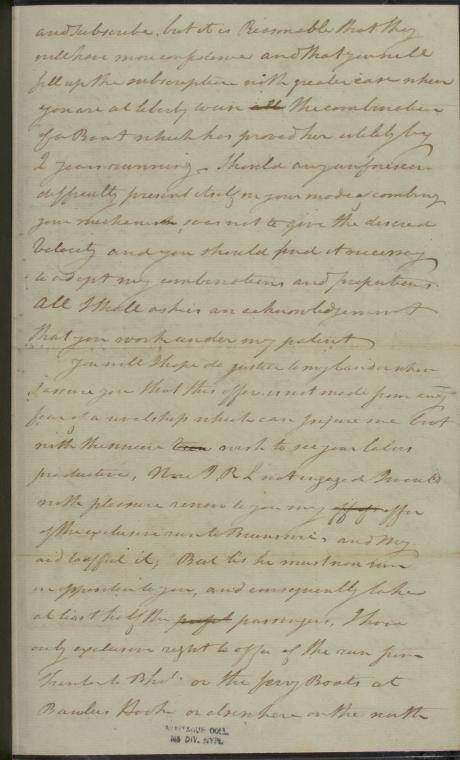 and subscribe, but it is Reasonable that they
will have more confidence and that you will
fill up the subscription with greater ease when
you are at liberty to use all the combination
for Boat which has proved her utility by
2 years running. Should any unforeseen
difficulty present itself in your mode of combing
your mechanism so as not to give the desired
Velocity and you should find it necessary
to adopt my combinations and proportions
All I shall ask is an acknowledgement
that you work under my patent
You will I hope do justice to my candor when
I assure you that this offer is not made from any
fear of a rivalship which can injure me but
with the sincere wish to see your labors
productive, Were J R L not engaged I would
with pleasure renew to you my offer offer
of the exclusive run to Brunswick and my
aid to effect it, But as he must now run
in opposition to you, and consequently take
at least half the passengers, I have
only exclusive right to offer of the run from
Trenton to Phil. or the ferry Boats at
Paulus Hook or elsewhere on the north
MONTAGUE COLL.
MS DIV. NYPL